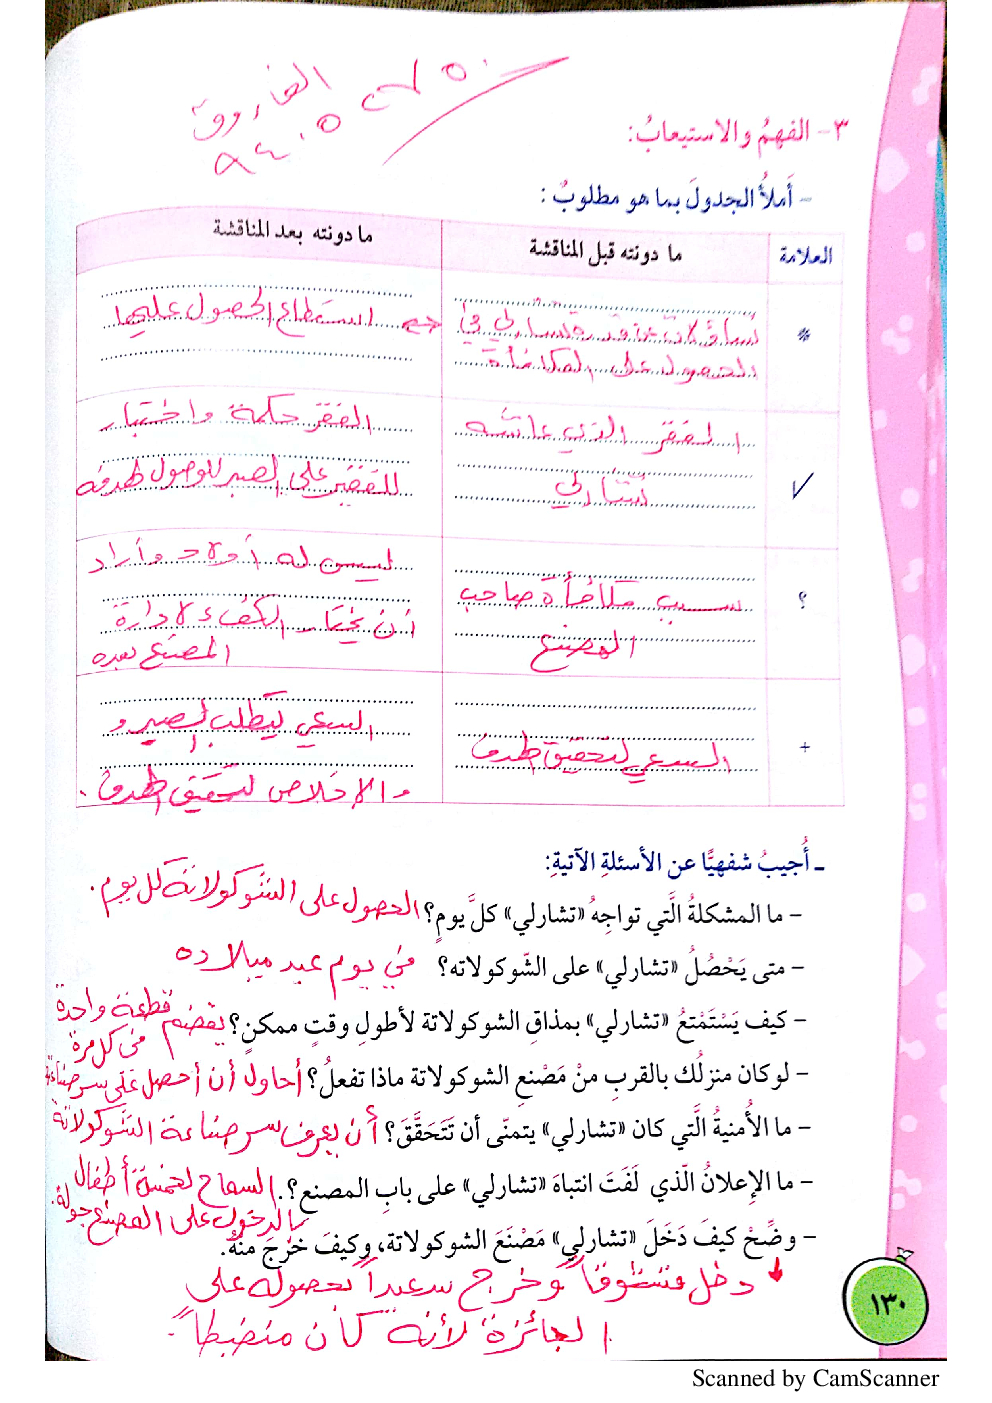 الفاروق
٩٤٠٥٢٦٥٠
٣- الفهمُ والاستيعابُ:
- أَملأُ الجدولَ بما هو مطلوبٌ:
العلامة
ما دونته قبل المناقشة
ما دونته بعد المناقشة
*
تساؤلات عن قدر تشارلي في
الحصول على المكافأة
استطاع الحصول عليها
✓
الفقر الذي عاشه
تشارلي
الفقر حكمة واختبار
للفقير على الصبر للوصول لهدفه
؟
سبب مكافأة صاحب
المصنع
ليس له أولاد وأراد
أن يختار الكفاء لإدارة
المصنع بعده
+
السعي لتحقيق الهدف
السعي يتطلب الصبر و
والإخلاص لتحقيق الهدف.
ـ أُجيبُ شفهيًّا عن الأسئلةِ الآتيةِ:
- ما المشكلةُ الَّتي تواجِهُ «تشارلي» كلَّ يومٍ؟ الحصول على الشوكولاتة كل يوم.
- متى يَحْصُلُ «تشارلي» على الشّوكولاته؟ في يوم عيد ميلاده
- كيف يَسْتَمْتِعُ «تشارلي» بمذاقِ الشوكولاتة لأطولِ وقتٍ ممكنٍ؟ يقضم قطعة واحدة
في كل مرة
- لو كان منزلُك بالقربِ منْ مَصْنعِ الشوكولاتة ماذا تفعلُ؟ أحاول أن أحصل على سر صناعة
- ما الأُمنيةُ الَّتي كان «تشارلي» يتمنّى أن تَتَحَقَّقَ؟ أن يعرف سر صناعة الشوكولاتة
- ما الإعلانُ الّذي لَفَتَ انتباهَ «تشارلي» على بابِ المصنع؟. السماح لخمسة أطفال
بالدخول على المصنع جولة.
- وضِّحْ كيفَ دَخَلَ «تشارلي» مَصْنَعَ الشوكولاتة، وكيفَ خرَجَ منْهُ.
دخل متشوقاً وخرج سعيداً لحصوله على
الجائزة لأنه كان منضبطاً.
١٣٠
Scanned by CamScanner